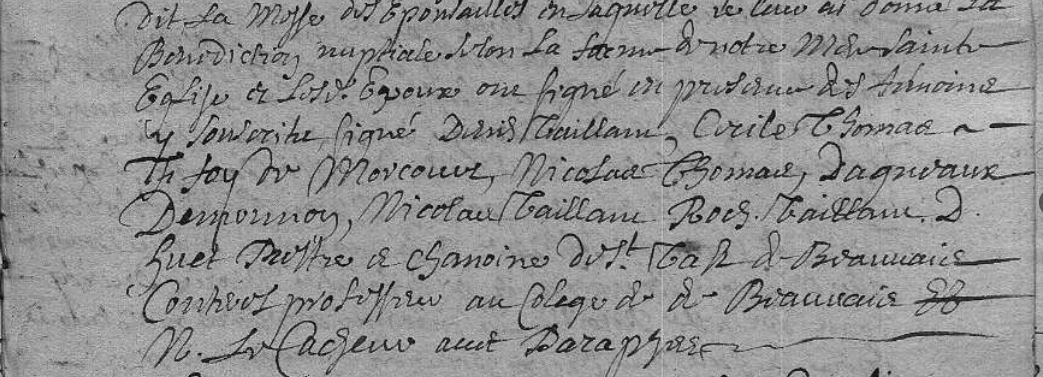 dit La Messe des Epousailles en laquelle je leur ai donné La
Benediction nuptiale selon La forme de notre Mere sainte
Eglise et Lesd. Epoux ont signé en presence des temoins
y souscrits signé Denis Taillant, Cecile Thomas
de Morcourt, Nicolas Thomas, Dagneaux
Demormon, Nicolas Taillant Roch. Taillant, D.
huet Prestre et chanoine de St. Bast de Beauvais
professeur au Colege de de Beauvais
N. Le Cacheur avec Paraphes